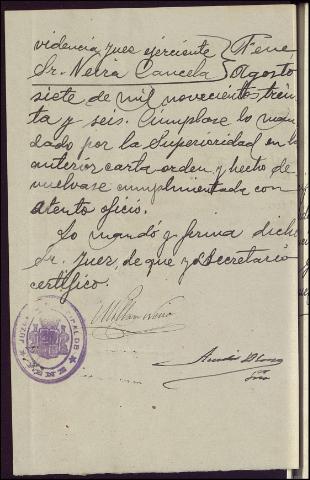 videncia Juez ejerciente } Tene
Sr. Neira Cancela } Agosto
siete de mil novecientos trein
ta y seis. Cumplase lo man
dado por la Superioridad en la
anterior carta orden, y hecho de
vuelvase cumplimentada con
atento oficio.
Lo mandó y firma dicho
Sr. Juez, de que yo Secretario
certifico.
JUZGADO MUNICIPAL DE